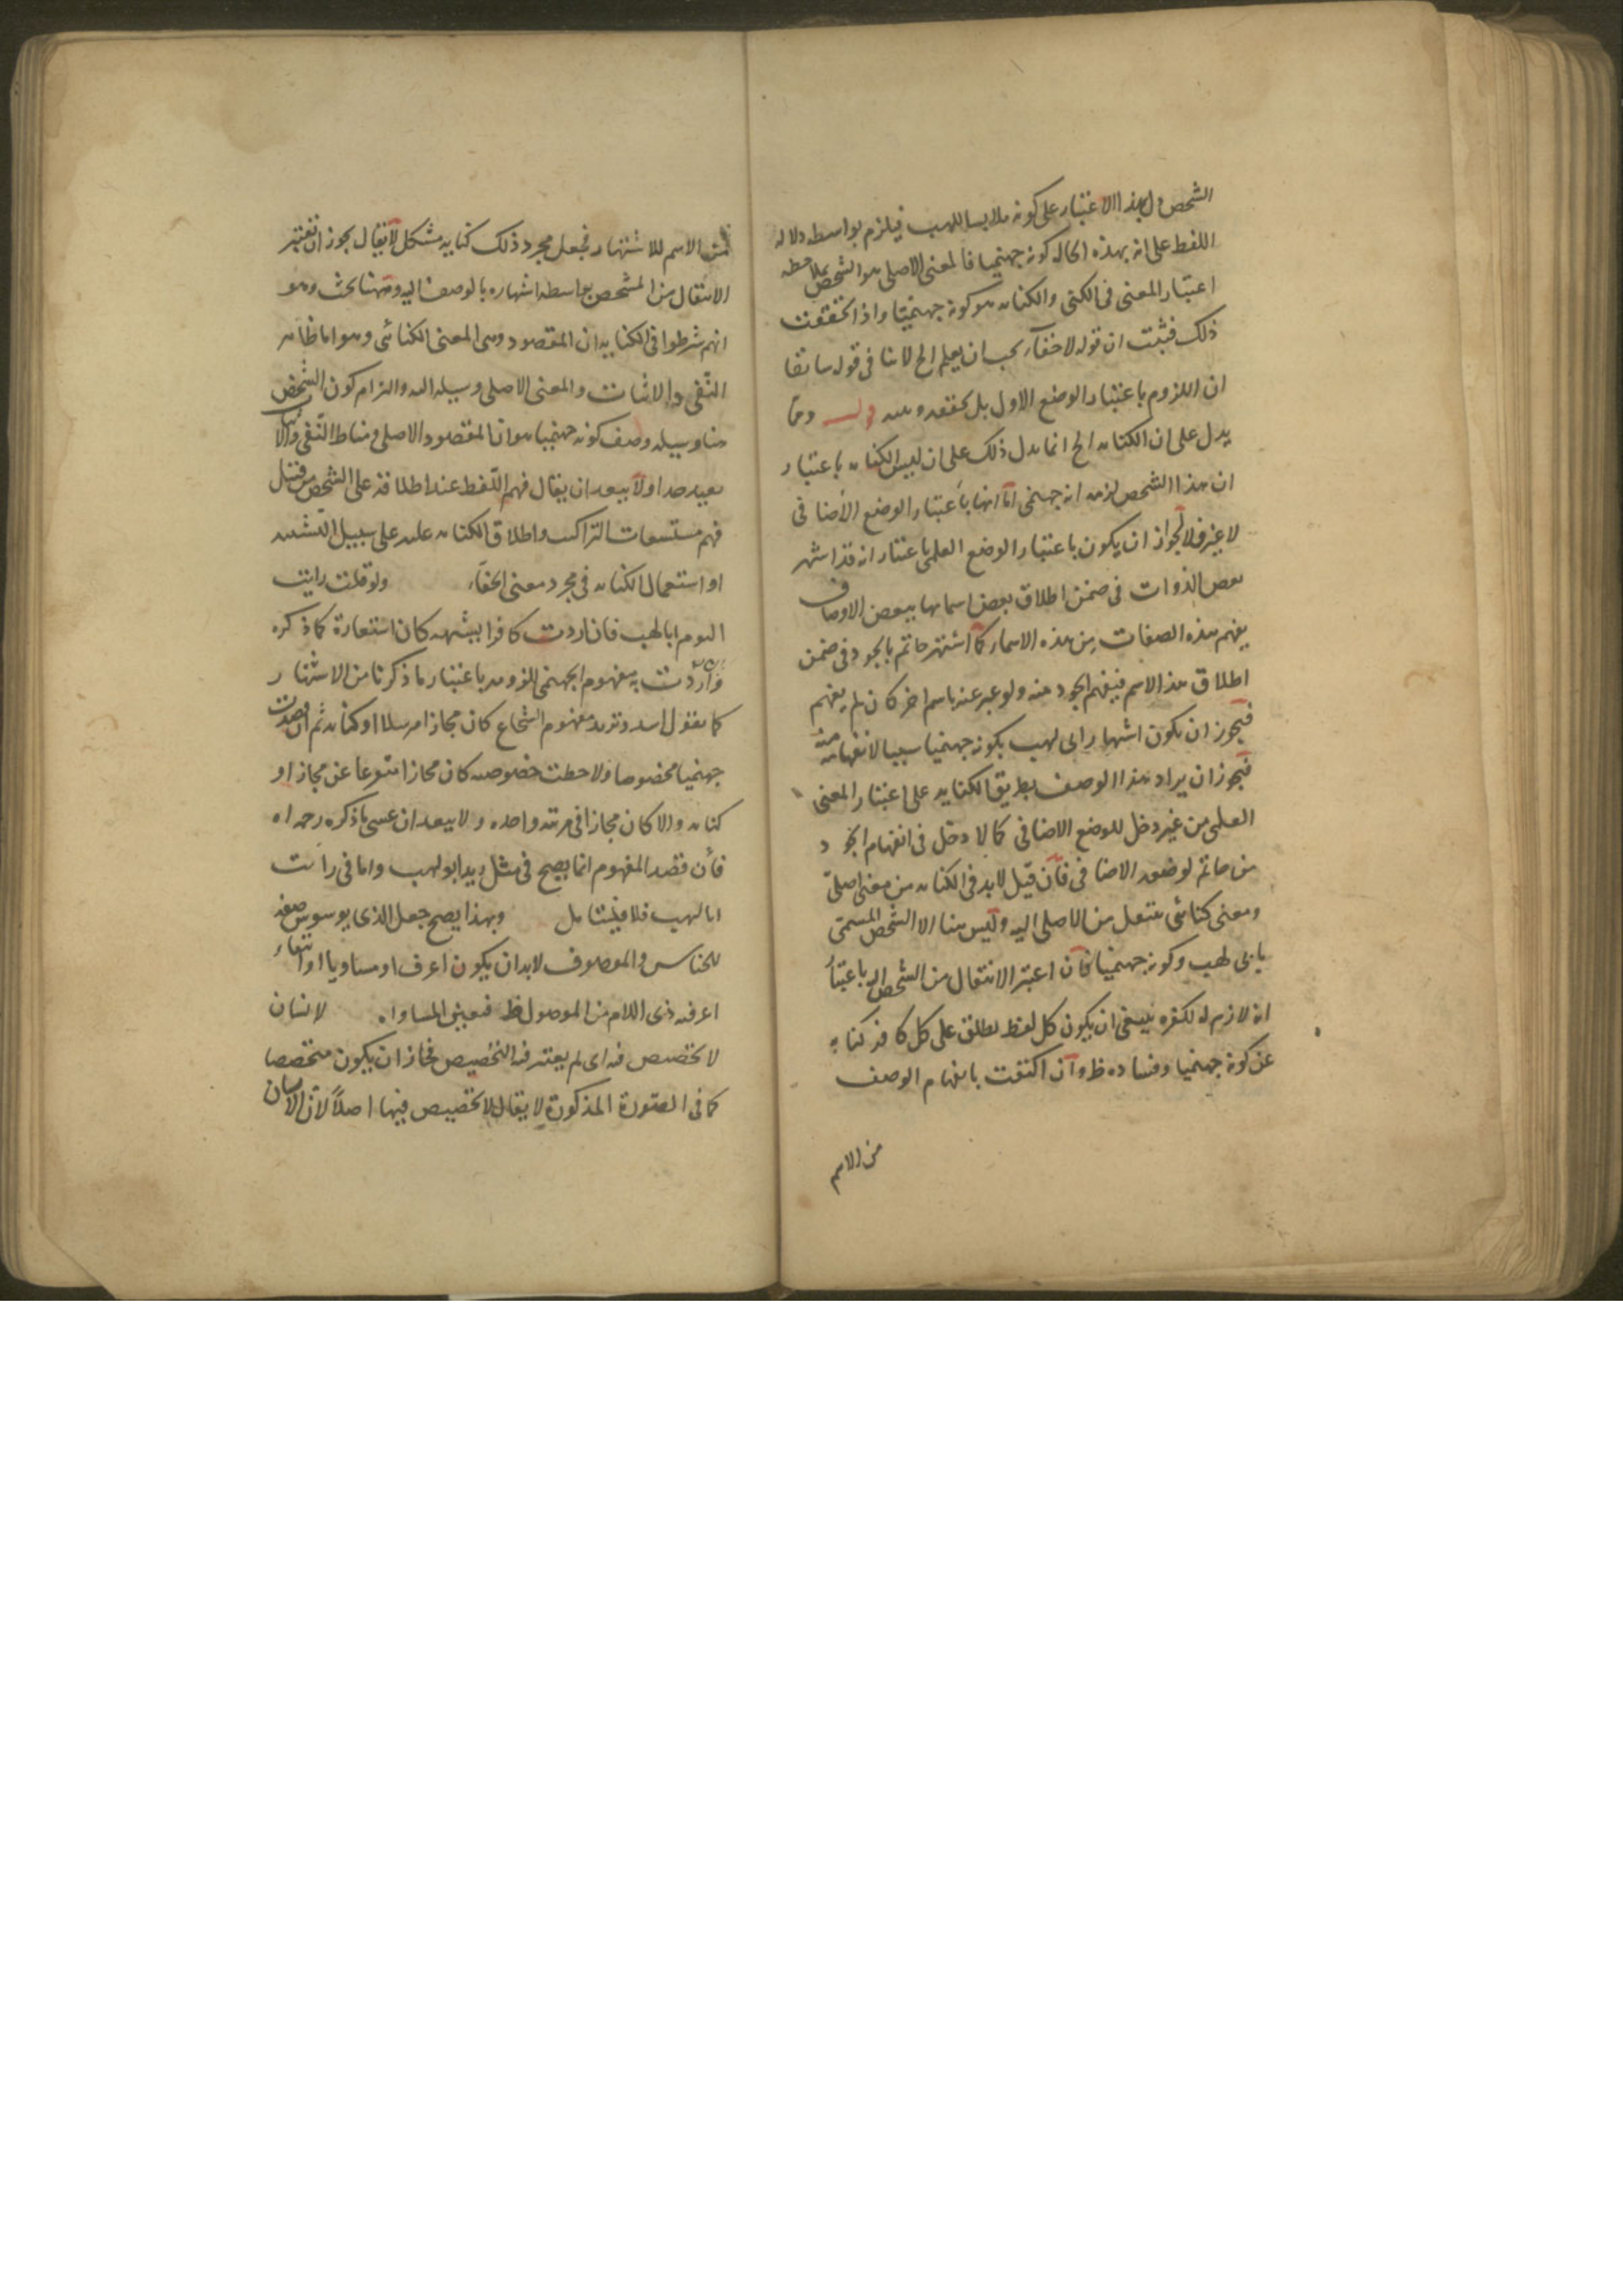 الشخص ول بهذا الاعتبار على كونه ملابسا للهب فيلزم بواسطه دلاله
اللفظ على انه بهذه الحاله كونه جهنميا فالمعنى الاصلى هو الشخص بملاحظه
اعتبار المعنى فى الكنى والكنايه هو كونه جهنميا واذا تحققت
ذلك فثبت ان قوله لا خفآء يجب ان يعلم الخ لا ينافى قوله سابقا
ان اللزوم باعتبار الوضع الاول بل يحققه ويبينه قوله ومما
يدل على ان الكنايه الخ انما يدل ذلك على ان ليس الكنايه باعتبار
ان هذا الشخص لزمه انه جهنمى اما انها باعتبار الوضع الاضافى
لا غير فلا لجواز ان يكون باعتبار الوضع العلمى باعتبار انه قد اشتهر
بعض الذوات فى ضمن اطلاق بعض اسمائها ببعض الاوصاف
يفهم هذه الصفات من هذه الاسماء كما اشتهر حاتم بالجود فى ضمن
اطلاق هذا الاسم فيفهم الجود منه ولو عبر عنه باسم اخر كان لم يفهم
فيجوز ان يكون اشتهار ابى لهب بكونه جهنميا سببا لانفهامه منه
فيجوز ان يراد هذا الوصف بطريق الكنايه على اعتبار المعنى
العلمى من غير دخل للوضع الاضافى كما لا دخل فى انفهام الجود
من حاتم لوضعه الاضافى فان قيل لا بد فى الكنايه من معنى اصلى
ومعنى كنائى ينتقل من الاصلى اليه وليس هنا الا الشخص المسمى
بابى لهب وكونه جهنميا فان اعتبر الانتقال من الشخص اليه باعتبار
انه لازم له لكفره ينبغى ان يكون كل لفظ يطلق على كل كافر كنايه
عن كونه جهنميا وفساده ظ وان اكتفت بانفهام الوصف
من الاسم
من الاسم للاشتهار فجعل مجرد ذلك كنايه مشكل لا يقال يجوز ان تعتبر
الانتقال من المشخص بواسطه اشتهاره بالوصف اليه وههنا بحث وهو
انهم شرطوا فى الكنايه ان المقصود هى المعنى الكنائى وهو مناط
النفى والاثبات والمعنى الاصلى وسيله اليه والتزام كون الشخص
هنا وسيله وصف كونه جهنميا هو ان المقصود الاصلى ومناط النفى والاثبات
بعيد جدا ولا يبعد ان يقال فهم اللفظ عند اطلاقه على الشخص من قبيل
فهم مستتبعات التراكيب واطلاق الكنايه عليه على سبيل التشبيه
او استعمال الكنايه فى مجرد معنى الخفآء ولو قلت رايت
اليوم ابا لهب فان اردت كافرا يشبهه كان استعارة كما ذكره
وان اردت به مفهوم الجهنمى اللزومه باعتبار ما ذكرنا من الاشتهار
كما يقول اسد وتريد مفهوم الشجاع كان مجازا مرسلا او كنايه ثم ان قصدت
جهنميا مخصوصا ولاحظت خصوصه كان مجازا متفرعا عن مجاز او
كنايه والا كان مجازا فى مرتبه واحده ولا يبعد ان عسى ما ذكره رحمه الله
فان قصد المفهوم انما يصح فى مثل زيد ابو لهب واما فى رايت
ابا لهب فلا فليتامل وبهذا يصح جعل الذى يوسوس صفه
للخناس والموصوف لا بد ان يكون اعرف او مساويا او انتفاء
اعرفيه ذى اللام من الموصول ظ فتعين المساواه لانسان
لا تخصيص فيه اى لم يعتبر فيه التخصيص فجاز ان يكون متخصصا
كما فى الصورة المذكورة لا يقال لا تخصيص فيها اصلا لان الانسان